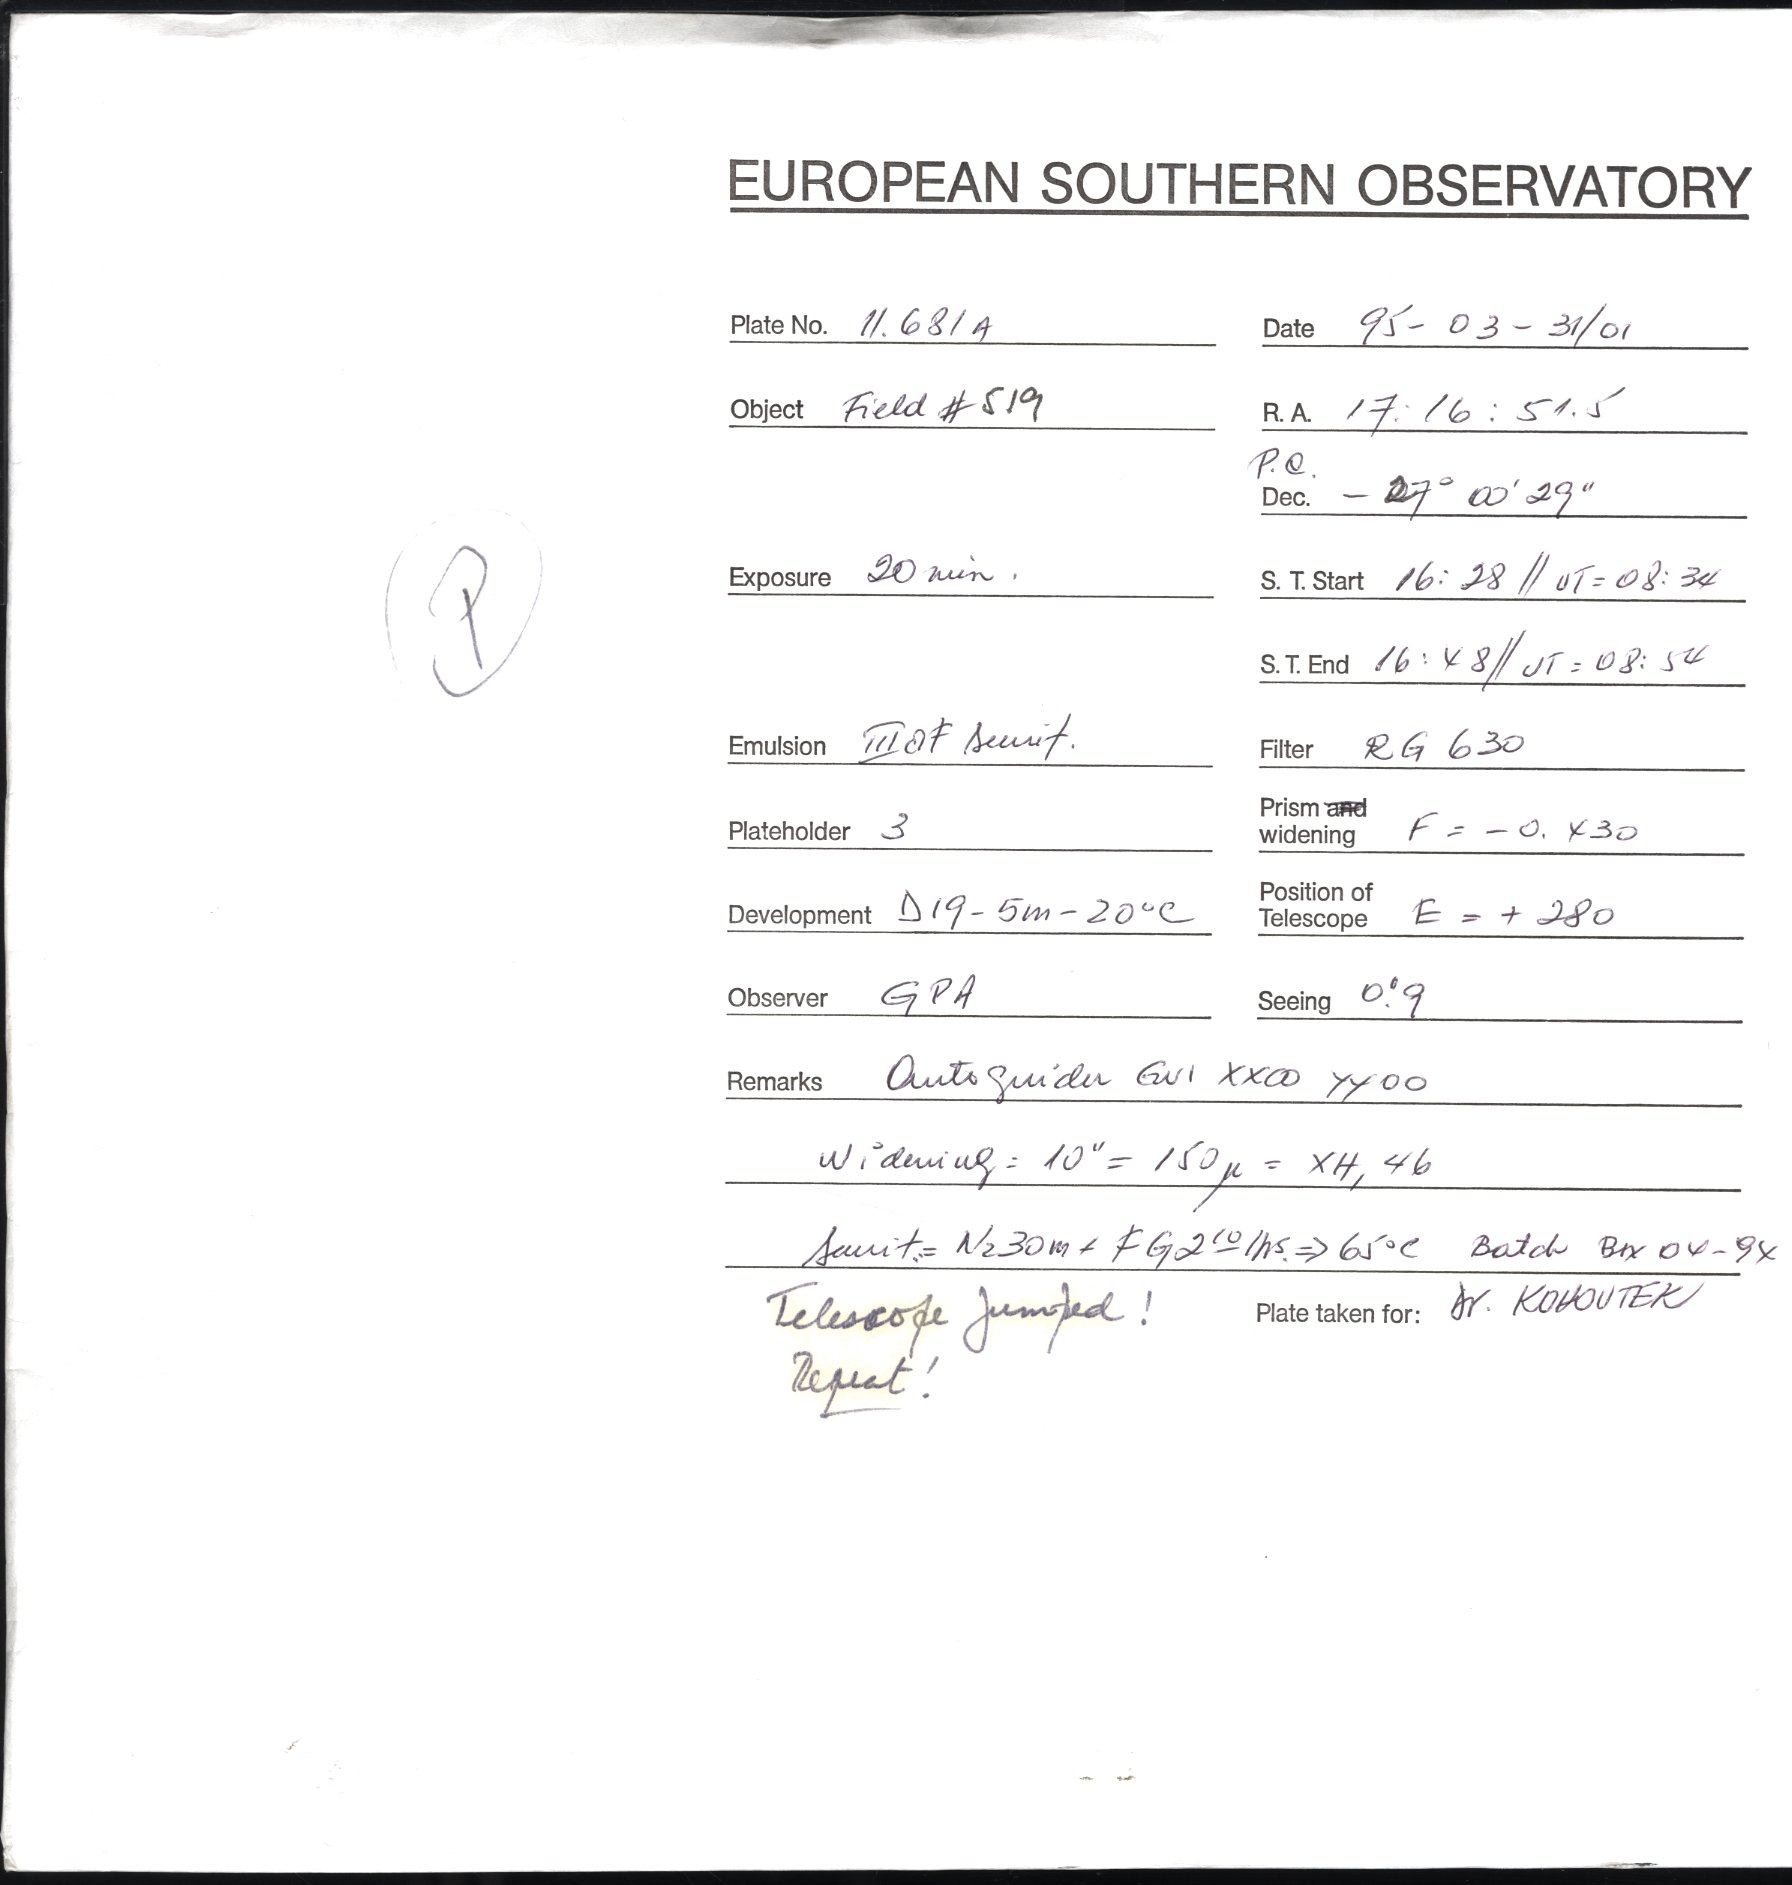 EUROPEAN SOUTHERN OBSERVATORY
Plate No. 11.681A
Date 95-03-31/01
Object Field #519
R. A. 17:16:51.5
P.C.
Dec. -27° 00' 29"
Exposure 20 min.
S. T. Start 16:28 // UT=08:34
S. T. End 16:48 // UT=08:54
P
Emulsion IIIaF sensit.
Filter RG 630
Plateholder 3
Prism and
widening F = -0.430
Development D19-5m-20°C
Position of
Telescope E = +280
Observer GPA
Seeing 0".9
Remarks Autoguider XX00 YY00
Widening = 10" = 150µ = XH, 46
Sensit. = N2 30m + FG 2 hs. ⇒ 65°C Batch 04-94
Telescope jumped!
Plate taken for: Dr. KOHOUTEK
Repeat!